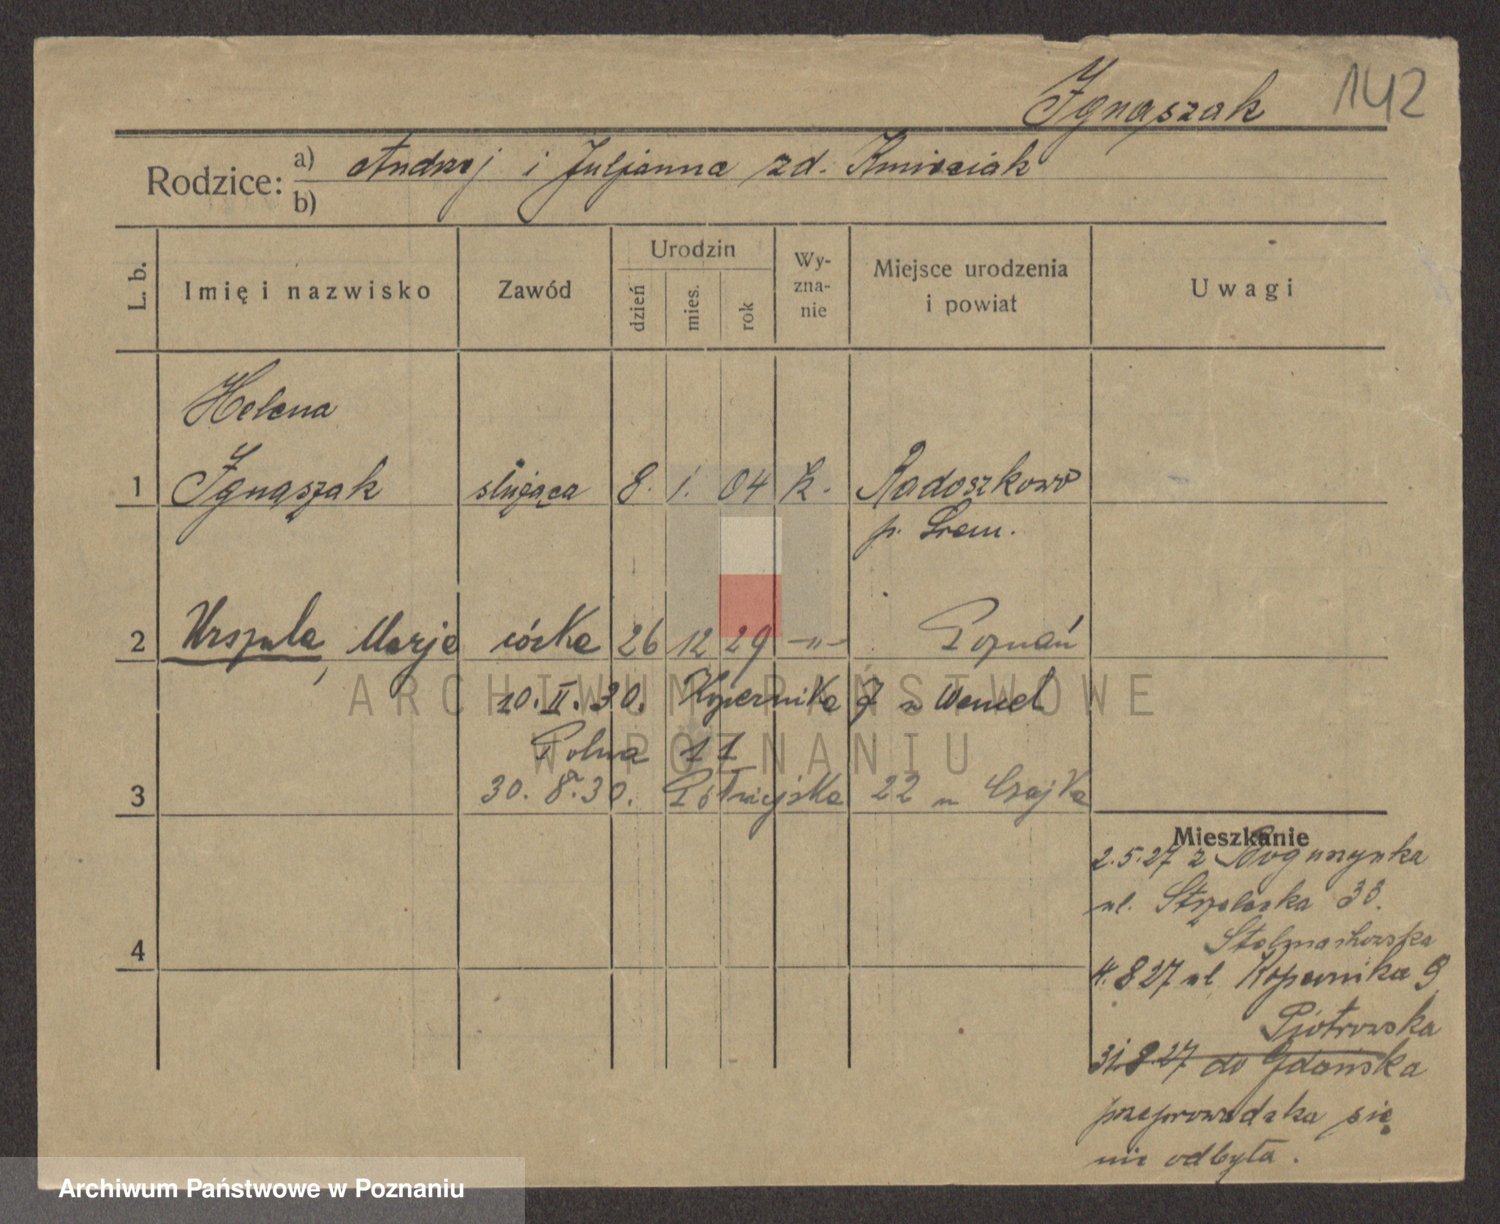 142
Ignaszak
Rodzice:
a) Andrzej i Juljanna zd. Kmieciak
b)
L. b.
Imię i nazwisko
Zawód
Urodzin
dzień
mies.
rok
Wy-
zna-
nie
Miejsce urodzenia
i powiat
Uwagi
Helena
1 Ignaszak służąca 8. 1. 04 k. Radoszkowo
p. Śrem.
2 Urszula, Marja córka 26 12 29 -"- Poznań
10. II. 30. Kopernika 7 u Wencel
Polna 11
3 30. 8. 30. Półwiejska 22 u Czajka
4
Mieszkanie
2.5.27 z Boguszynka
ul. Strzelecka 33.
Stelmachowska
4.8 27 ul. Kopernika 9
Piotrowska
31.8.27 do Gdańska
przeprowadzka się
nie odbyła.
ARCHIWUM PAŃSTWOWE
W POZNANIU
Archiwum Państwowe w Poznaniu